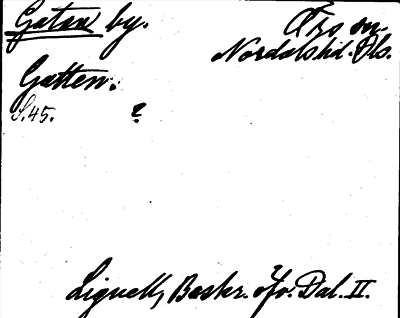 Gatan by. Ärs sn.
Nordalshd. Dls.
Gatten.
S. 45. ?
Lignell, Beskr. öfv. Dal. II.